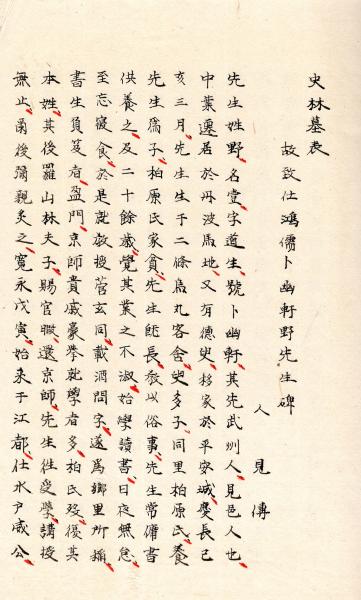 史林墓表
故致仕鴻儒卜幽軒野先生碑
人見傳
先生姓野名壹字道生號卜幽軒其先武州人見邑人也
中葉遷居於丹波馬地又有德史移家於平安城慶長己
亥三月先生生于二條烏丸客舍史多子同里柏原氏養
先生爲子柏原氏家貧先生既長教以俗事先生常傭書
供養之及二十餘歲覺其業之不淑始學讀書日夜無怠
至忘寢食於是就敎授菅玄同載酒問字遂爲鄉里所稱
書生負笈者盈門京師貴戚豪挙就學者多柏氏歿復其
本姓其後羅山林夫子賜官暇還京師先生往受學講授
無止爾後彌親炙之寬永戊寅始来于江都仕水戶威公